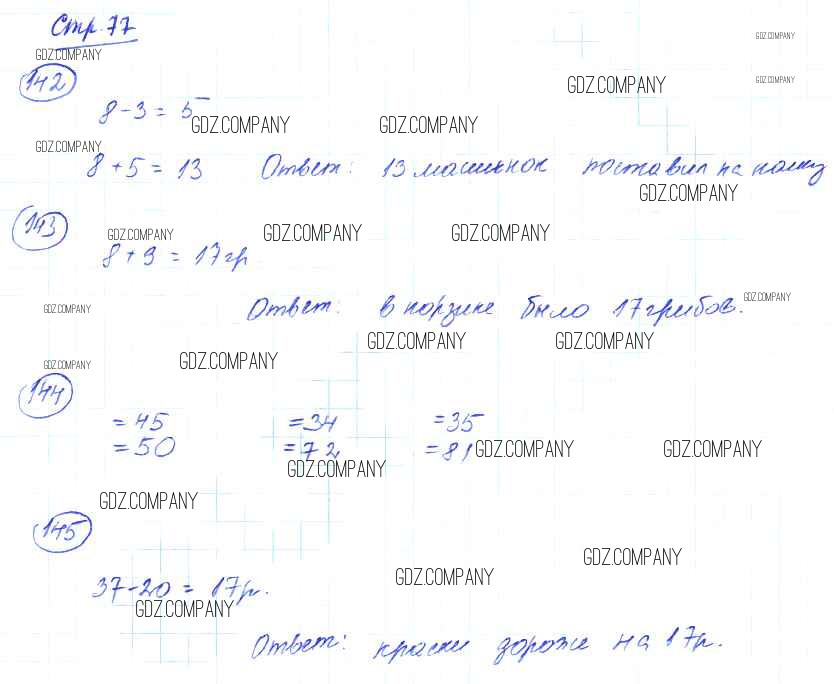 Стр. 77
GDZ.COMPANY GDZ.COMPANY
142 GDZ.COMPANY GDZ.COMPANY
8-3=5
GDZ.COMPANY GDZ.COMPANY
GDZ.COMPANY
8+5=13 Ответ: 13 машинок поставил на полку
GDZ.COMPANY
143 GDZ.COMPANY GDZ.COMPANY GDZ.COMPANY
8+9=17гр
GDZ.COMPANY Ответ: в корзине было 17 грибов. GDZ.COMPANY
GDZ.COMPANY GDZ.COMPANY
GDZ.COMPANY GDZ.COMPANY
144
=45 =34 =35
=50 =72 =81 GDZ.COMPANY GDZ.COMPANY
GDZ.COMPANY
GDZ.COMPANY
145
GDZ.COMPANY
GDZ.COMPANY
37-20=17р.
GDZ.COMPANY
Ответ: краски дороже на 17р.